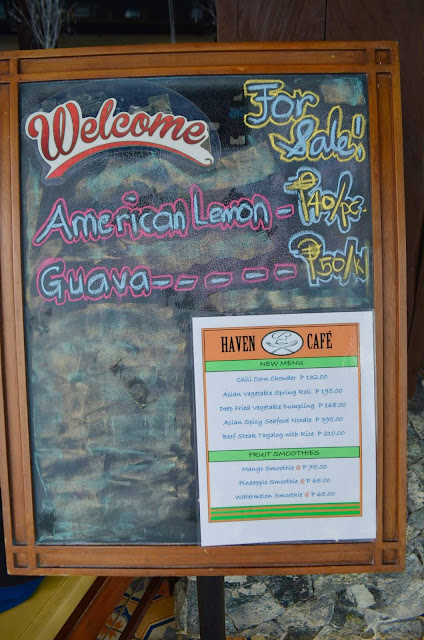 Welcome
For Sale!
American Lemon - ₱40/pc.
Guava - - - - - - ₱50/k
HAVEN CAFÉ
NEW MENU
Chili Corn Chowder P 132.00
Asian Vegetable Spring Roll P 195.00
Deep Fried Vegetable Dumpling P 168.00
Asian Spicy Seafood Noodle P 395.00
Beef Steak Tagalog with Rice P 210.00
FRUIT SMOOTHIES
Mango Smoothie @ P 75.00
Pineapple Smoothie @ P 65.00
Watermelon Smoothie @ P 65.00